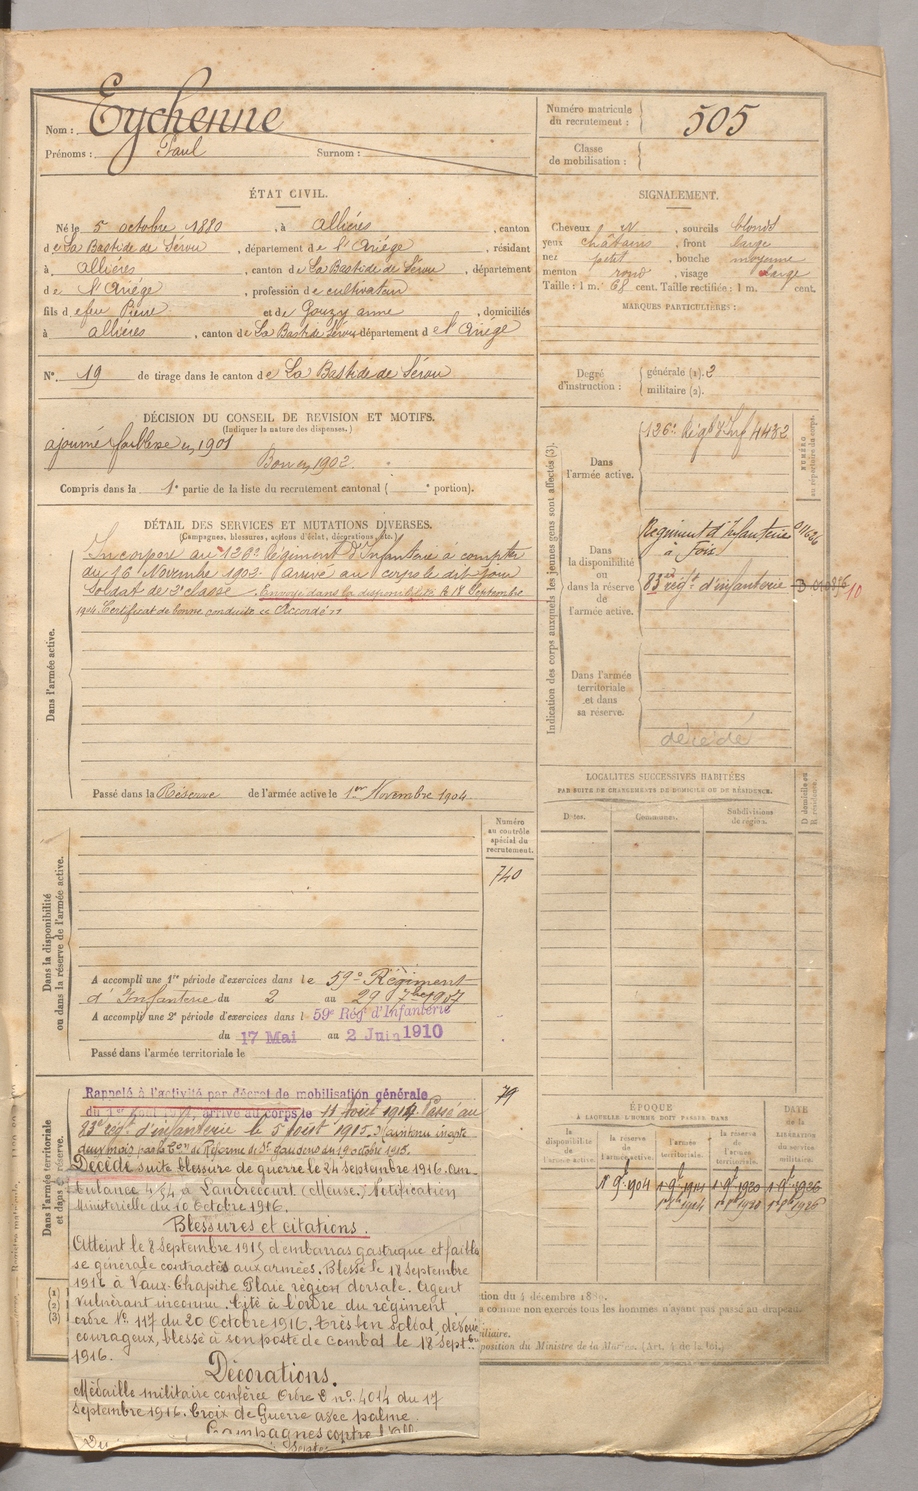 Nom : Eychenne
Prénoms : Paul Surnom :
Numéro matricule
du recrutement : 505
Classe
de mobilisation :
ÉTAT CIVIL.
Né le 5 octobre 1880, à Allières, canton
de La Bastide de Sérou, département de l'Ariège, résidant
à Allières, canton de La Bastide de Sérou, département
de l'Ariège, profession de cultivateur
fils de feu Pierre et de Gouzy anne, domiciliés
à Allières, canton de La Bastide de Sérou département de l'Ariège
N° 19 de tirage dans le canton de La Bastide de Sérou
SIGNALEMENT.
Cheveux N, sourcils blonds
yeux châtains, front large
nez petit, bouche moyenne
menton rond, visage large
Taille : 1 m. 68 cent. Taille rectifiée : 1 m. cent.
MARQUES PARTICULIÈRES :
Degré
d'instruction :
générale (1). 2
militaire (2).
DÉCISION DU CONSEIL DE REVISION ET MOTIFS.
(Indiquer la nature des dispenses.)
ajourné faiblesse en 1901
Bon en 1902.
Compris dans la 1e partie de la liste du recrutement cantonal ( e portion).
DÉTAIL DES SERVICES ET MUTATIONS DIVERSES.
(Campagnes, blessures, actions d'éclat, décorations, etc.)
Dans l'armée active.
Incorporé au 126e Régiment d'Infanterie à compter
du 16 Novembre 1902 arrivé au corps le dit jour
Soldat de 2e classe Envoyé dans la disponibilité le 18 Septembre
1904. Certificat de bonne conduite « Accordé »
Passé dans la Réserve de l'armée active le 1er Novembre 1904
Indication des corps auxquels les jeunes gens sont affectés (3).
NUMÉRO
au répertoire du corps.
Dans
l'armée active.
126e Régt d'Inf 4482
Dans
la disponibilité
ou
dans la réserve
de
l'armée active.
Régiment d'Infanterie
à Foix
83e régt d'infanterie
Dans l'armée
territoriale
et dans
sa réserve.
décédé
LOCALITÉS SUCCESSIVES HABITÉES
PAR SUITE DE CHANGEMENTS DE DOMICILE OU DE RÉSIDENCE.
Dates.
Communes.
Subdivisions
de région.
D domicile ou
R résidence.
Numéro
au contrôle
spécial du
recrutement.
740
Dans la disponibilité
ou dans la réserve de l'armée active.
A accompli une 1re période d'exercices dans le 59e Régiment
d'Infanterie du 2 au 29 7bre 1907
A accompli une 2e période d'exercices dans l 59e Rég d'Infanterie
du 17 Mai au 2 Juin 1910
Passé dans l'armée territoriale le
79
Dans l'armée territoriale
et dans sa réserve.
Rappelé à l'activité par décret de mobilisation générale
du 1er Août 1914, arrivé au corps le 11 Août 1914. Passé au
83e régt d'infanterie le 5 Août 1915. Maintenu inapte
deux mois par la Con de Réforme de St gaudens du 19 octobre 1915.
Décédé suite blessure de guerre le 24 Septembre 1916. Am-
bulance 4/54 à Landrecourt (Meuse.) Notification
Ministérielle du 10 Octobre 1916.
Blessures et citations.
Atteint le 8 Septembre 1915 d'embarras gastrique et faibles
se générale contractés aux armées. Blessé le 18 Septembre
1916 à Vaux-Chapitre Plaie région dorsale. Agent
vulnérant inconnu. Cité à l'ordre du régiment
ordre No 117 du 20 Octobre 1916. Très bon Soldat, dévoué
courageux, blessé à son poste de combat le 18 Septbre
1916.
Décorations.
Médaille militaire conférée Ordre D no 4014 du 17
Septembre 1916. Croix de Guerre avec palme.
Campagnes contre l'All
ÉPOQUE
À LAQUELLE L'HOMME DOIT PASSER DANS
DATE
DE LA
LIBÉRATION
DU SERVICE
militaire.
la
disponibilité
de
l'armée active.
la réserve
de
l'armée active.
l'armée
territoriale.
la réserve
de
l'armée
territoriale.
1er 9bre 1904
(1)
(2)
(3)
tion du 4 décembre 1889.
a comme non exercés tous les hommes n'ayant pas passé au drapeau.
xiliaire.
position du Ministre de la Marine (Art. 4 de la loi.)